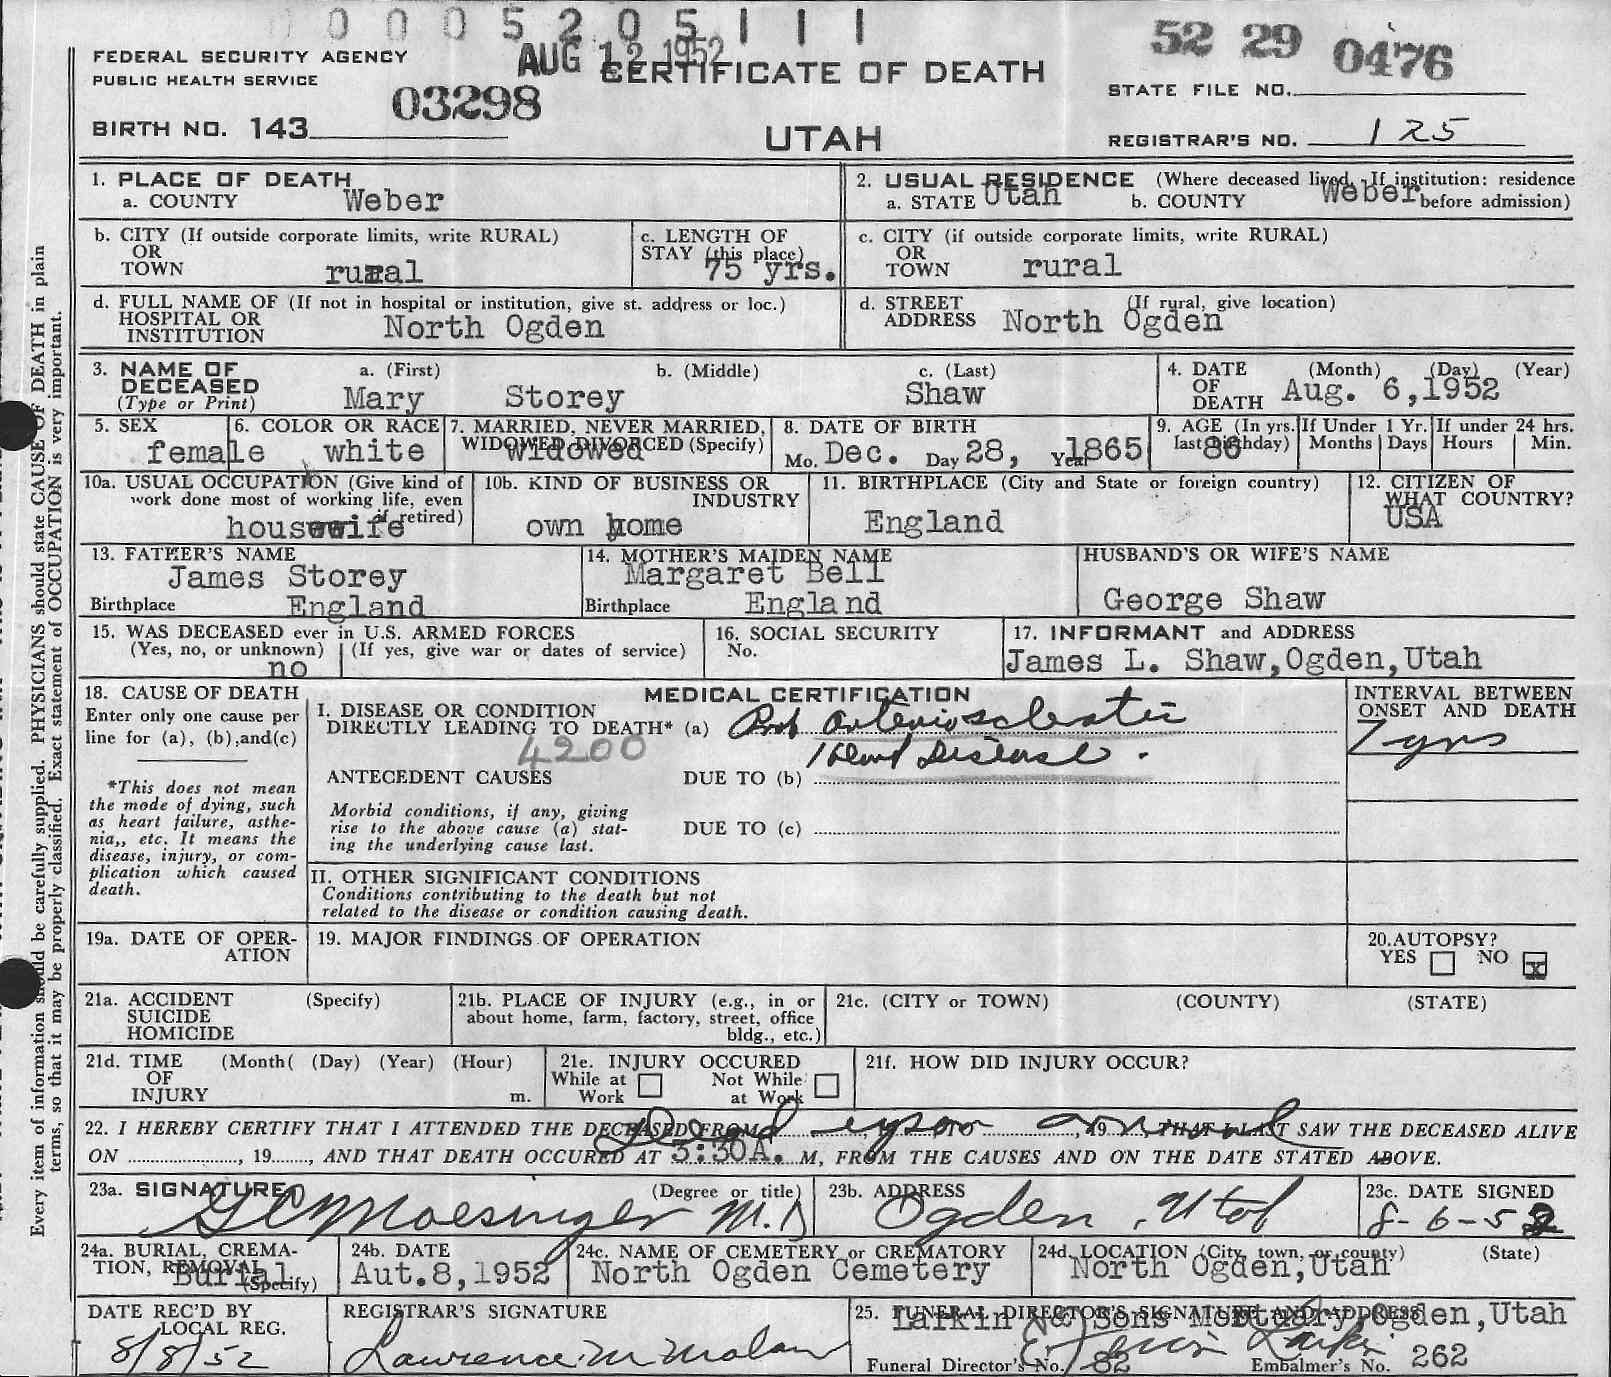 0 0 0 5 2 0 5 1 1 1
AUG 12 1952
52 29 0476
FEDERAL SECURITY AGENCY
PUBLIC HEALTH SERVICE
CERTIFICATE OF DEATH
STATE FILE NO.
03298
BIRTH NO. 143
UTAH
REGISTRAR'S NO. 125
1. PLACE OF DEATH
a. COUNTY Weber
2. USUAL RESIDENCE (Where deceased lived. If institution: residence
a. STATE Utah b. COUNTY Weber before admission)
b. CITY (If outside corporate limits, write RURAL)
OR
TOWN rural
c. LENGTH OF
STAY (this place)
75 yrs.
c. CITY (if outside corporate limits, write RURAL)
OR
TOWN rural
d. FULL NAME OF (If not in hospital or institution, give st. address or loc.)
HOSPITAL OR
INSTITUTION North Ogden
d. STREET (If rural, give location)
ADDRESS North Ogden
3. NAME OF a. (First) b. (Middle) c. (Last)
DECEASED
(Type or Print) Mary Storey Shaw
4. DATE (Month) (Day) (Year)
OF
DEATH Aug. 6,1952
5. SEX
female
6. COLOR OR RACE
white
7. MARRIED, NEVER MARRIED,
WIDOWED DIVORCED (Specify)
widowed
8. DATE OF BIRTH
Mo. Dec. Day 28, Year 1865
9. AGE (In yrs. If Under 1 Yr. If under 24 hrs.
last birthday) 86 Months Days Hours Min.
10a. USUAL OCCUPATION (Give kind of
work done most of working life, even
if retired)
housewife
10b. KIND OF BUSINESS OR
INDUSTRY
own home
11. BIRTHPLACE (City and State or foreign country)
England
12. CITIZEN OF
WHAT COUNTRY?
USA
13. FATHER'S NAME
James Storey
Birthplace England
14. MOTHER'S MAIDEN NAME
Margaret Bell
Birthplace England
HUSBAND'S OR WIFE'S NAME
George Shaw
15. WAS DECEASED ever in U.S. ARMED FORCES
(Yes, no, or unknown) (If yes, give war or dates of service)
no
16. SOCIAL SECURITY
No.
17. INFORMANT and ADDRESS
James L. Shaw,Ogden,Utah
18. CAUSE OF DEATH
Enter only one cause per
line for (a), (b),and(c)
*This does not mean
the mode of dying, such
as heart failure, asthe-
nia,, etc. It means the
disease, injury, or com-
plication which caused
death.
MEDICAL CERTIFICATION
I. DISEASE OR CONDITION
DIRECTLY LEADING TO DEATH* (a) Prob Arteriosclerotic
4200 Heart Disease.
ANTECEDENT CAUSES DUE TO (b)
Morbid conditions, if any, giving
rise to the above cause (a) stat-
ing the underlying cause last.
DUE TO (c)
II. OTHER SIGNIFICANT CONDITIONS
Conditions contributing to the death but not
related to the disease or condition causing death.
INTERVAL BETWEEN
ONSET AND DEATH
7 yrs
19a. DATE OF OPER-
ATION
19. MAJOR FINDINGS OF OPERATION
20.AUTOPSY?
YES NO x
21a. ACCIDENT (Specify)
SUICIDE
HOMICIDE
21b. PLACE OF INJURY (e.g., in or
about home, farm, factory, street, office
bldg., etc.)
21c. (CITY or TOWN) (COUNTY) (STATE)
21d. TIME (Month( (Day) (Year) (Hour)
OF
INJURY m.
21e. INJURY OCCURED
While at Not While
Work at Work
21f. HOW DID INJURY OCCUR?
Dead upon arrival
22. I HEREBY CERTIFY THAT I ATTENDED THE DECEASED FROM , TO , 19 , THAT I LAST SAW THE DECEASED ALIVE
ON , 19 , AND THAT DEATH OCCURED AT 3:30A. M, FROM THE CAUSES AND ON THE DATE STATED ABOVE.
23a. SIGNATURE (Degree or title)
Moesinger M.D
23b. ADDRESS
Ogden, Utah
23c. DATE SIGNED
8-6-52
24a. BURIAL, CREMA-
TION, REMOVAL
(Specify)
Burial
24b. DATE
Aut.8,1952
24c. NAME OF CEMETERY or CREMATORY
North Ogden Cemetery
24d. LOCATION (City, town, or county) (State)
North Ogden,Utah
DATE REC'D BY
LOCAL REG.
8/8/52
REGISTRAR'S SIGNATURE
Lawrence M Malan
25. FUNERAL DIRECTOR'S SIGNATURE AND ADDRESS
Larkin & Sons Mortuary,Ogden,Utah
Larkin
Funeral Director's No. 82 Embalmer's No. 262
Every item of information should be carefully supplied. PHYSICIANS should state CAUSE OF DEATH in plain
terms, so that it may be properly classified. Exact statement of OCCUPATION is very important.